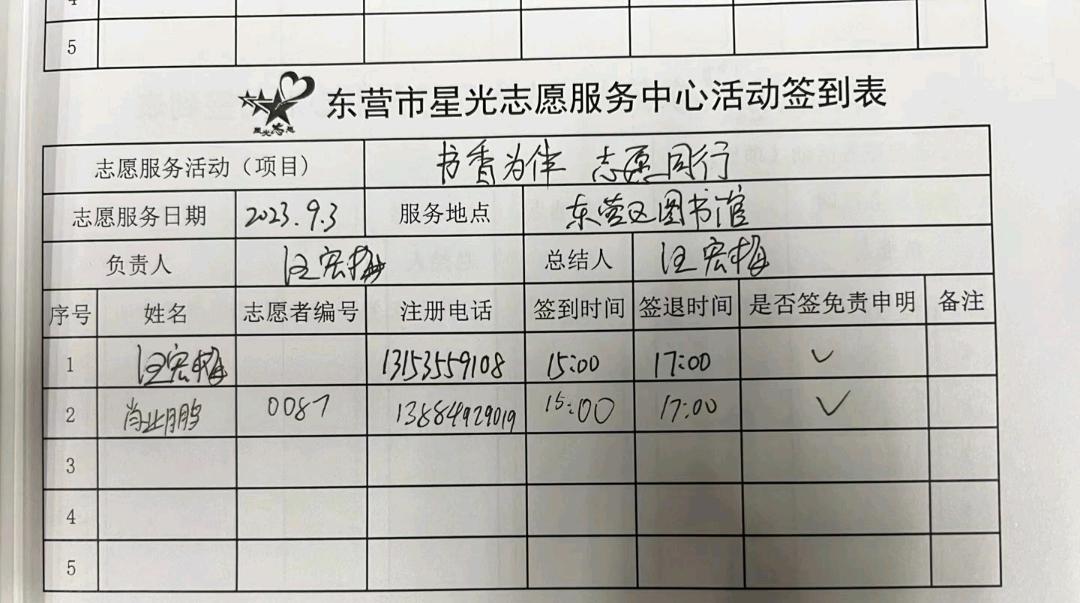 5
东营市星光志愿服务中心活动签到表
星光志愿
志愿服务活动（项目） 书香为伴 志愿同行
志愿服务日期 2023.9.3 服务地点 东营区图书馆
负责人 汪宏梅 总结人 汪宏梅
序号 姓名 志愿者编号 注册电话 签到时间 签退时间 是否签免责申明 备注
1 汪宏梅 13153559108 15:00 17:00 ✓
2 肖业鹏 0087 13884929019 15:00 17:00 ✓
3
4
5